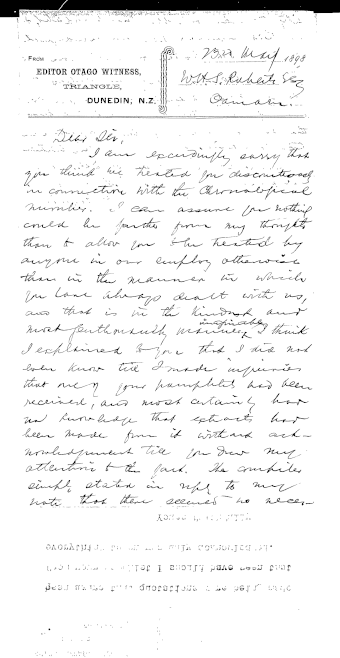 FROM
EDITOR OTAGO WITNESS,
TRIANGLE,
DUNEDIN, N.Z.
23rd May 1898
W. H. S. Roberts Esq
Oamaru.
Dear Sir,
I am exceedingly sorry that
you think we treated you discourteously
in connection with the Chronological
number. I can assure you nothing
could be further from my thoughts
than to allow you to be treated by
anyone in our employ otherwise
than in the manner in which
you have always dealt with us,
and that is in the kindest and
most gentlemanly manner. I think
I explained to you that I did not
even know till I made inquiries
that one of your pamphlets had been
received, and most certainly had
no knowledge that extracts had
been made from it without ack-
nowledgement till you drew my
attention to the fact. The compiler
simply stated in reply to my
note that there seemed no neces-